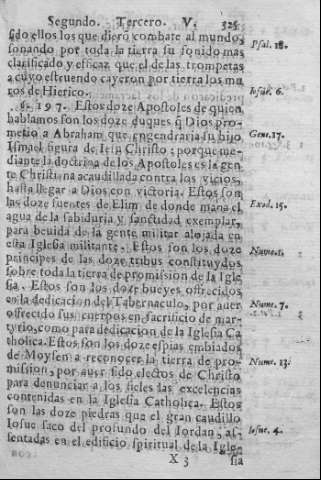 Segundo. Tercero. V. 325
sido ellos los que dierō combate al mundo,
sonando por toda la tierra su sonido mas
clarificado y eficaz que el de las trompetas
a cuyo estruendo cayeron por tierra los mu
ros de Hierico.
§. 197. Estos doze Apostoles de quien
hablamos son los doze duques q̃ Dios pro-
metio a Abraham que engendraria su hijo
Ismael figura de Iesu Christo; porque me-
diante la doctrina de los Apostoles es la gen
te Christiana acaudillada contra los vicios,
hasta llegar a Dios con victoria. Estos son
las doze fuentes de Elim de donde mana el
agua de la sabiduria y sanctidad exemplar,
para beuida de la gente militar alojada en
esta Iglesia militante. Estos son los doze
principes de las doze tribus constituydos
sobre toda la tierra de promission de la Igle
sia. Estos son los doze bueyes ofrecidos
en la dedicacion del Tabernaculo, por auer
ofrecido sus cuerpos en sacrificio de mar-
tyrio, como para dedicacion de la Iglesia Ca
tholica. Estos son los doze espias embiados
de Moysen a reconocer la tierra de pro-
mission, por auer sido electos de Christo
para denunciar a los fieles las excelencias
contenidas en la Iglesia Catholica. Estos
son las doze piedras que el gran caudillo
Iosue saco del profundo del Iordan, as-
sentadas en el edificio spiritual de la Igle-
X 3 sia
Psal. 18.
Iosue. 6.
Gene. 17.
Exod. 15.
Nume. 1.
Nume. 7.
Nume. 13.
Iosue. 4.